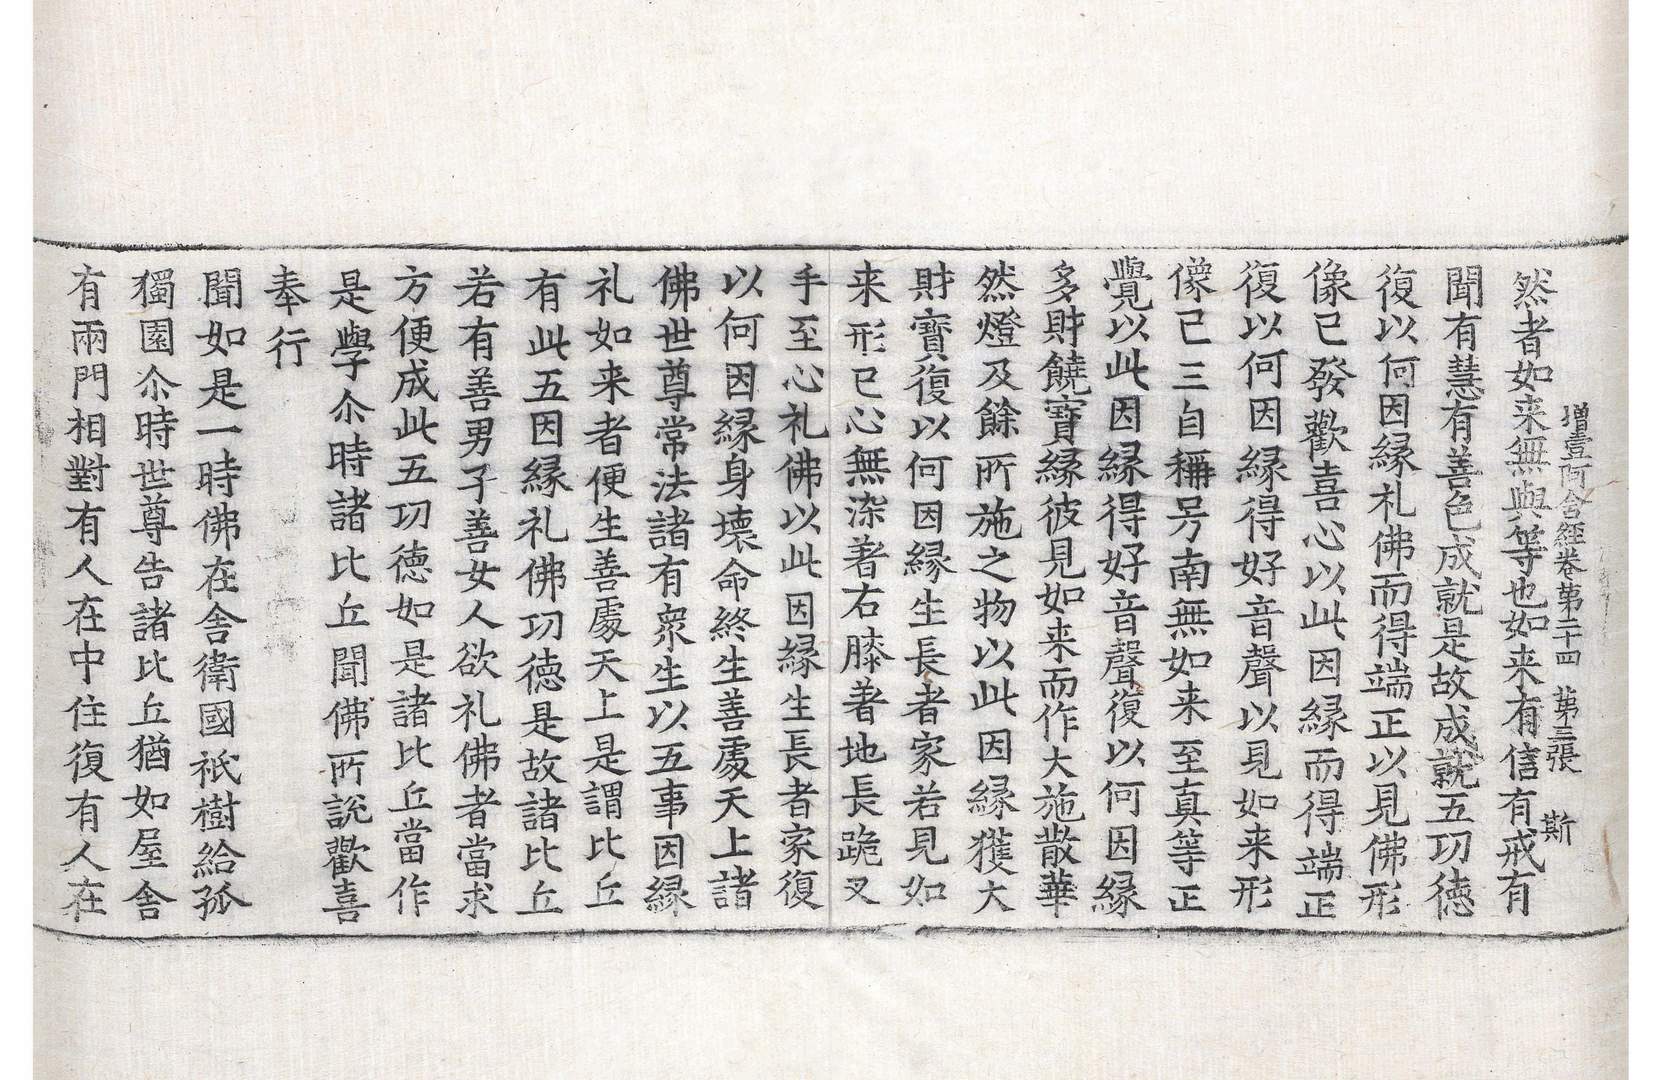 增壹阿含經卷第二十四 第三張 斯
然者如来無與等也如来有信有戒有
聞有慧有善色成就是故成就五功徳
復以何因縁礼佛而得端正以見佛形
像已發歡喜心以此因縁而得端正
復以何因縁得好音聲以見如来形
像已三自稱号南無如来至真等正
覺以此因縁得好音聲復以何因縁
多財饒寶縁彼見如来而作大施散華
然燈及餘所施之物以此因縁獲大
財寶復以何因縁生長者家若見如
来形已心無染著右膝著地長跪叉
手至心礼佛以此因縁生長者家復
以何因縁身壊命終生善處天上諸
佛世尊常法諸有衆生以五事因縁
礼如来者便生善處天上是謂比丘
有此五因縁礼佛功徳是故諸比丘
若有善男子善女人欲礼佛者當求
方便成此五功徳如是諸比丘當作
是學尒時諸比丘聞佛所說歡喜
奉行
聞如是一時佛在舎衛國祇樹給孤
獨園尒時世尊告諸比丘猶如屋舎
有兩門相對有人在中住復有人在